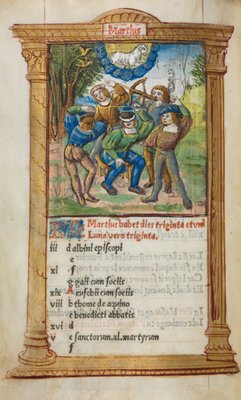 Martius
Martius habet dies triginta et vnū
Luna vero triginta.
iii d albini episcopi
e
xi f
g gaii cum socils
xix A eusebii cum socils
viii b thome de aquino
c benedicti abbatis
xvi d
v e sanctorum.xl.martyrum
f